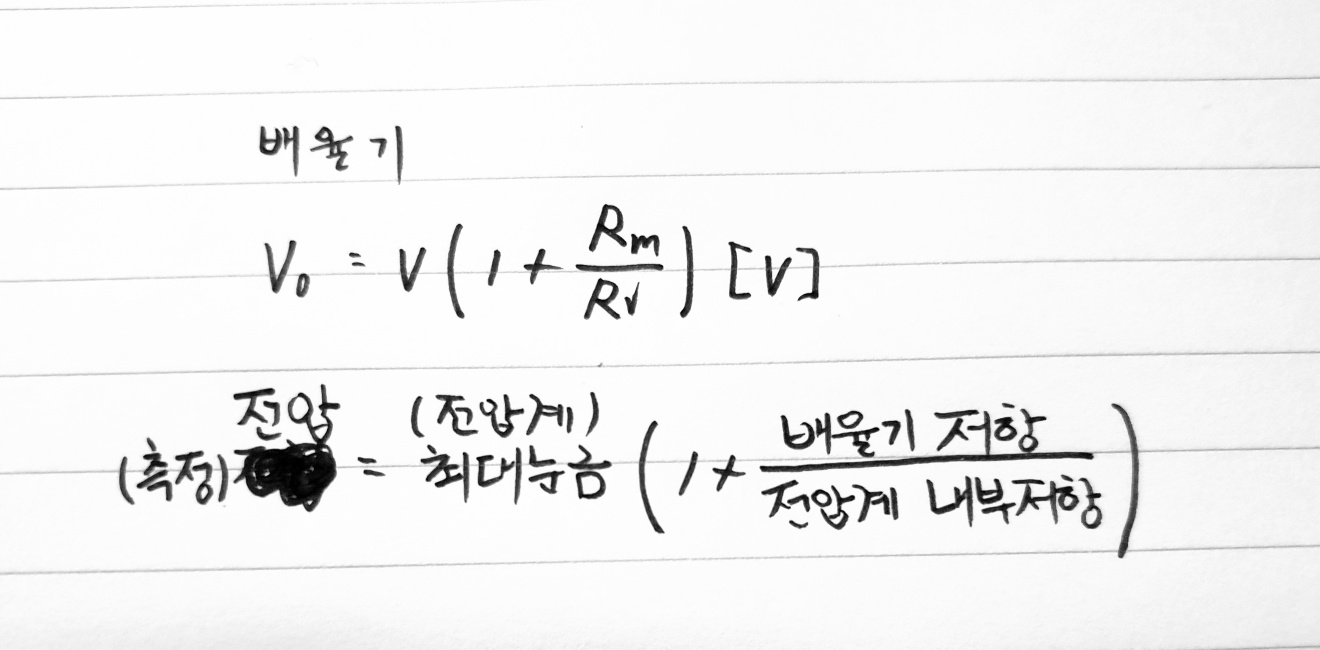 배율기
V₀ = V ( 1 + Rm / Rv ) [V]
(측정) 전압 = (전압계) 최대눈금 ( 1 + 배율기 저항 / 전압계 내부저항 )